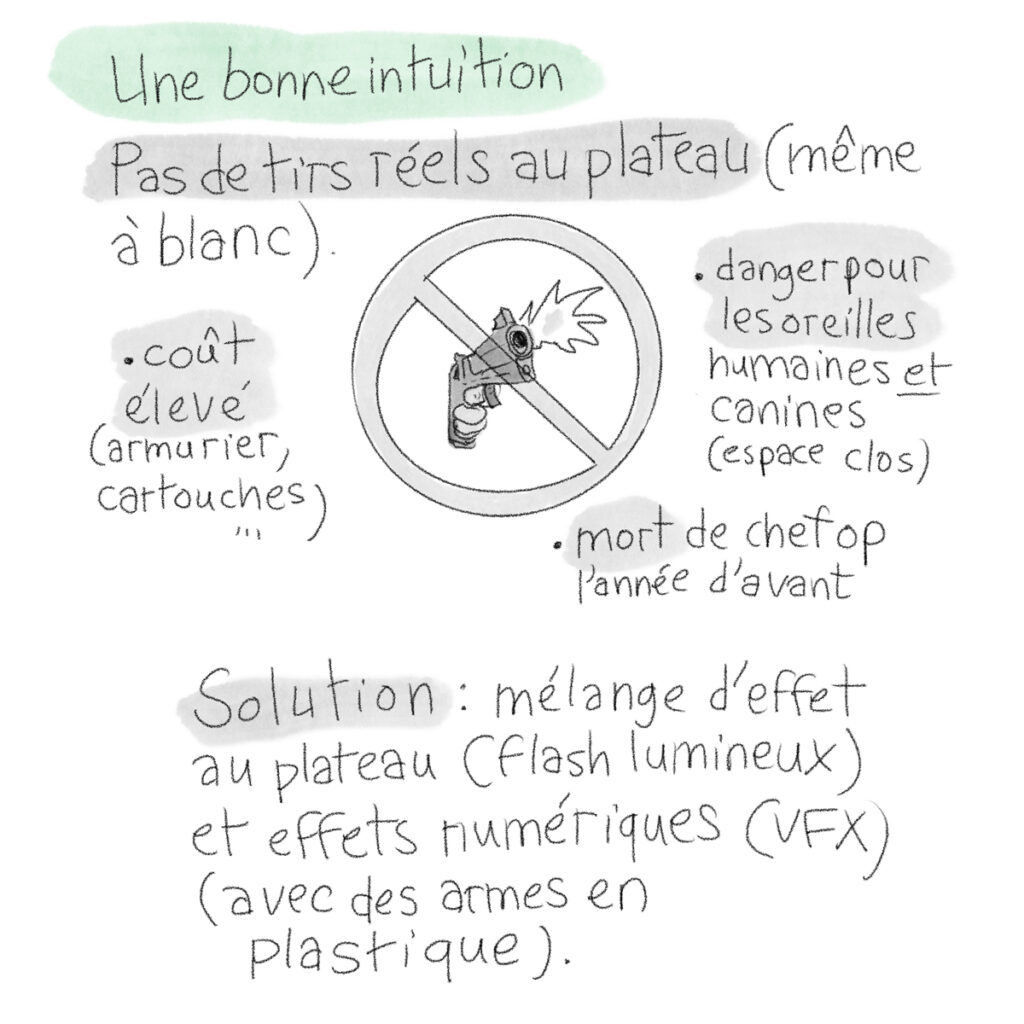 Une bonne intuition
Pas de tirs réels au plateau (même
à blanc).
• coût
élevé
(armurier,
cartouches
...)
• danger pour
les oreilles
humaines et
canines
(espace clos)
• mort de chef op
l'année d'avant
Solution : mélange d'effet
au plateau (flash lumineux)
et effets numériques (VFX)
(avec des armes en
plastique).